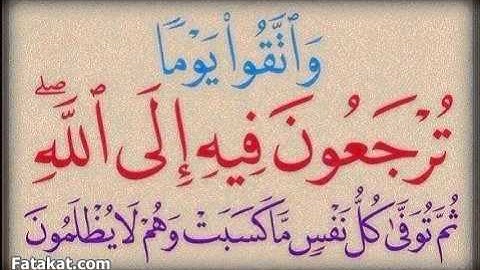 وَٱتَّقُوا۟ يَوْمًا
تُرْجَعُونَ فِيهِ إِلَى ٱللَّهِ ۖ
ثُمَّ تُوَفَّىٰ كُلُّ نَفْسٍ مَّا كَسَبَتْ وَهُمْ لَا يُظْلَمُونَ
Fatakat.com